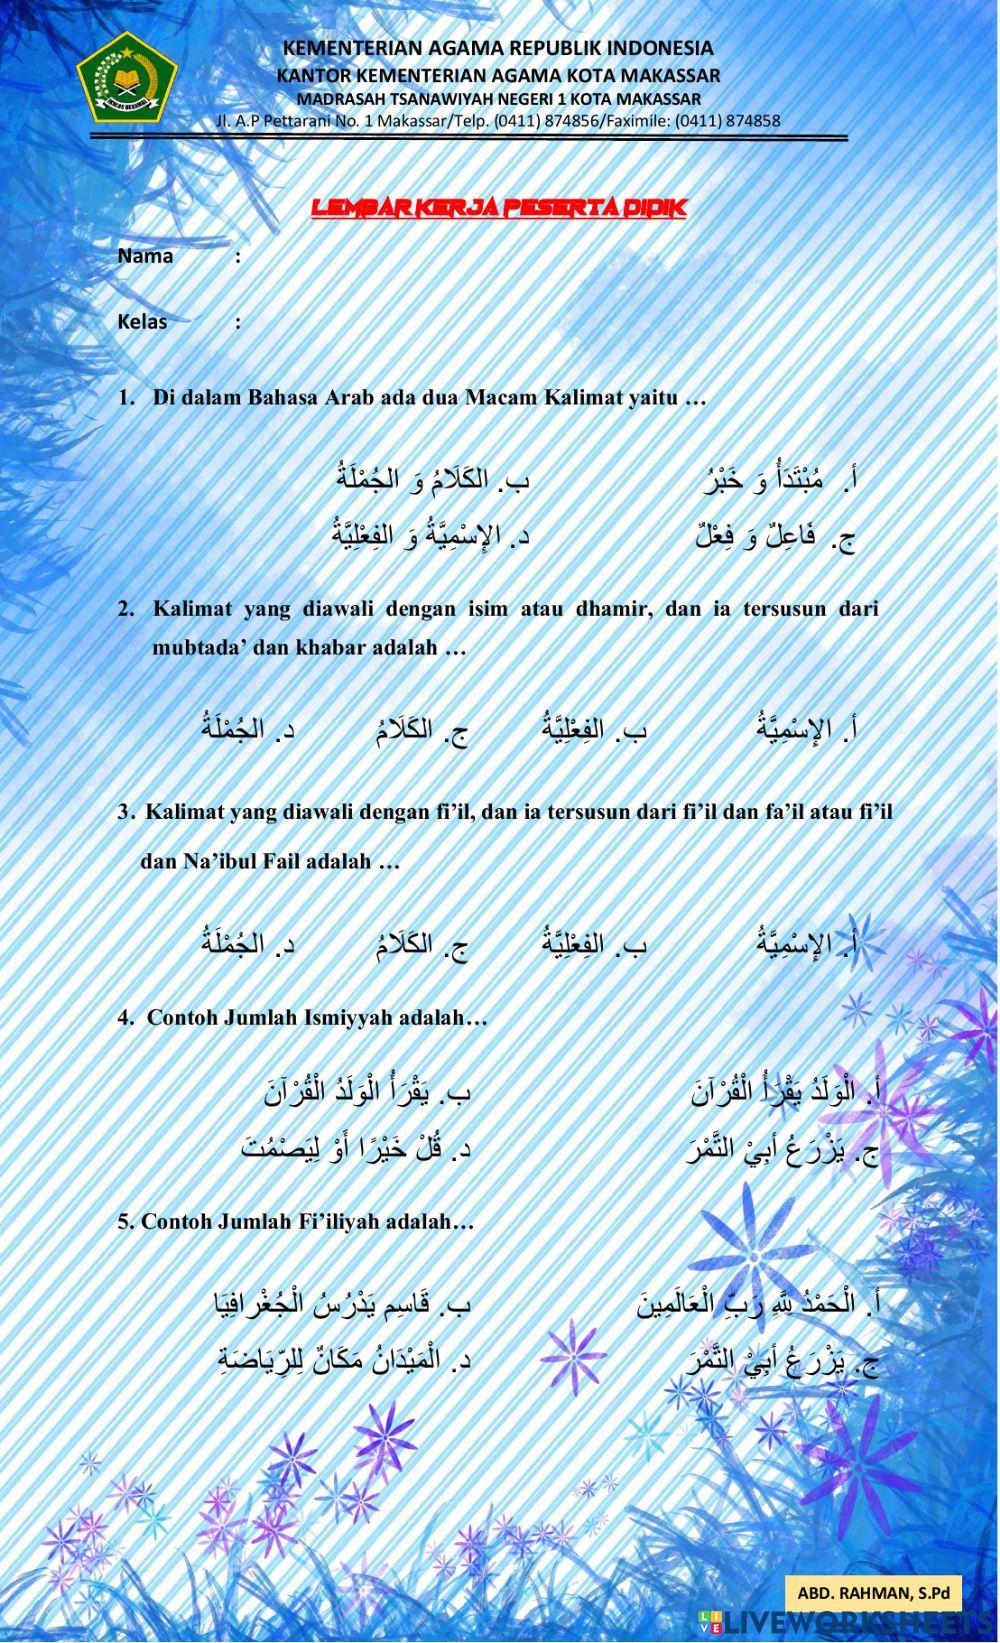 KEMENTERIAN AGAMA REPUBLIK INDONESIA
KANTOR KEMENTERIAN AGAMA KOTA MAKASSAR
MADRASAH TSANAWIYAH NEGERI 1 KOTA MAKASSAR
Jl. A.P Pettarani No. 1 Makassar/Telp. (0411) 874856/Faximile: (0411) 874858
LEMBAR KERJA PESERTA DIDIK
Nama :
Kelas :
1. Di dalam Bahasa Arab ada dua Macam Kalimat yaitu …
أ. مُبْتَدَأُ وَ خَبْرُ ب. الكَلَامُ وَ الجُمْلَةُ
ج. فَاعِلٌ وَ فِعْلٌ د. الإِسْمِيَّةُ وَ الفِعْلِيَّةُ
2. Kalimat yang diawali dengan isim atau dhamir, dan ia tersusun dari
mubtada’ dan khabar adalah …
أ. الإِسْمِيَّةُ ب. الفِعْلِيَّةُ ج. الكَلَامُ د. الجُمْلَةُ
3. Kalimat yang diawali dengan fi’il, dan ia tersusun dari fi’il dan fa’il atau fi’il
dan Na’ibul Fail adalah …
أ. الإِسْمِيَّةُ ب. الفِعْلِيَّةُ ج. الكَلَامُ د. الجُمْلَةُ
4. Contoh Jumlah Ismiyyah adalah…
أ. الْوَلَدُ يَقْرَأُ الْقُرْآنَ ب. يَقْرَأُ الْوَلَدُ الْقُرْآنَ
ج. يَزْرَعُ أبِيْ التَّمْرَ د. قُلْ خَيْرًا أَوْ لِيَصْمُتَ
5. Contoh Jumlah Fi’iliyah adalah…
أ. الْحَمْدُ لِلَّهِ رَبِّ الْعَالَمِينَ ب. قَاسِم يَدْرُسُ الْجُغْرافِيَا
ج. يَزْرَعُ أبِيْ التَّمْرَ د. الْمَيْدَانُ مَكَانٌ لِلرِّيَاضَةِ
ABD. RAHMAN, S.Pd
LIVEWORKSHEETS